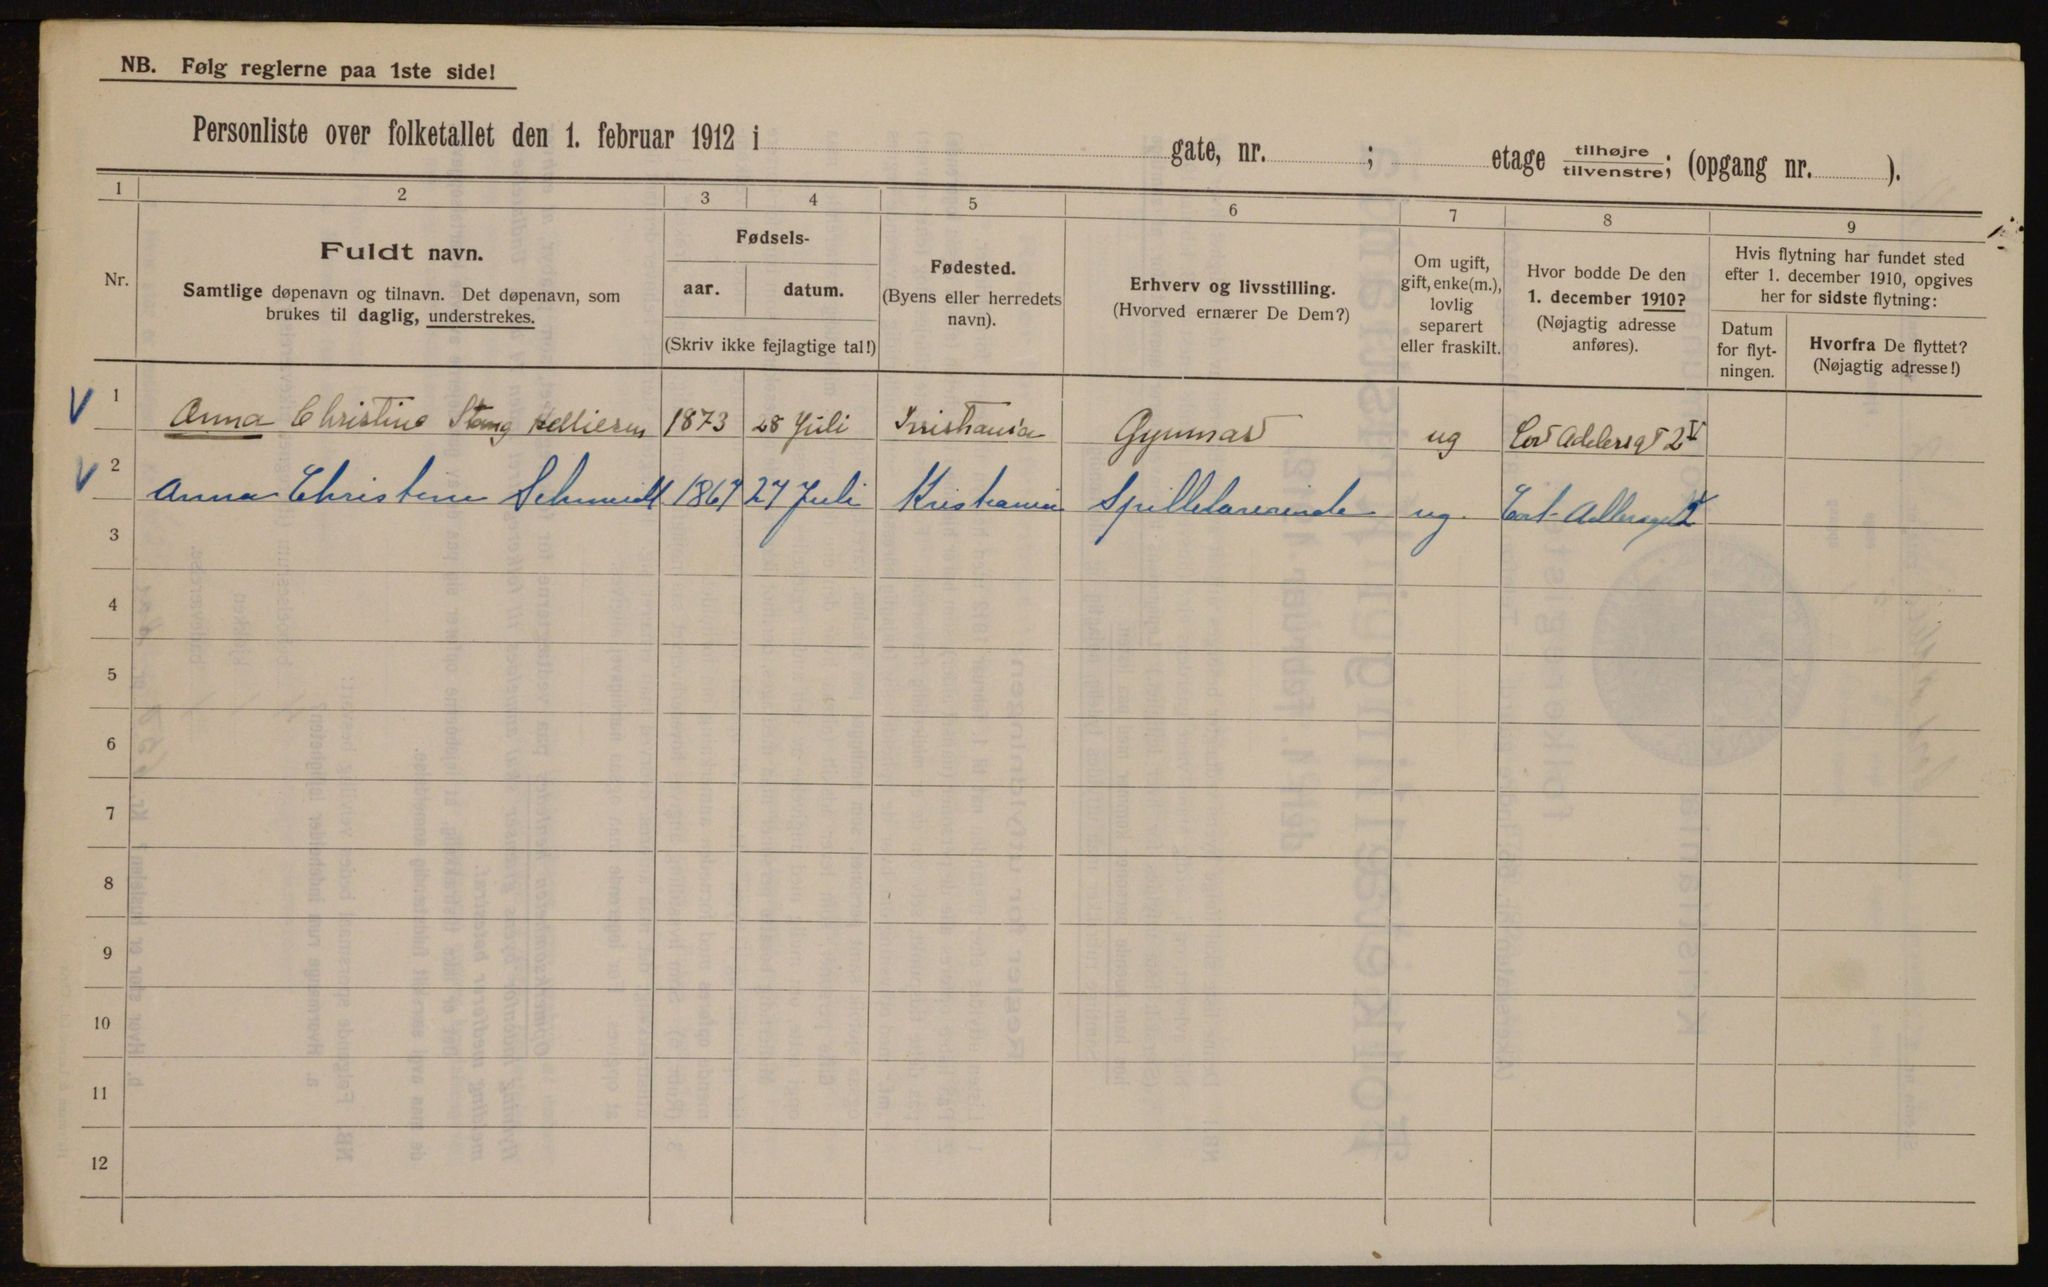 NB. Følg reglerne paa 1ste side!
Personliste over folketallet den 1. februar 1912 i gate, nr. ; etage tilhøjre/tilvenstre; (opgang nr. ).
1 2 3 4 5 6 7 8 9
Nr.
Fuldt navn.
Samtlige døpenavn og tilnavn. Det døpenavn, som
brukes til daglig, understrekes.
Fødsels-
aar. datum.
(Skriv ikke fejlagtige tal!)
Fødested.
(Byens eller herredets
navn).
Erhverv og livsstilling.
(Hvorved ernærer De Dem?)
Om ugift,
gift, enke(m.),
lovlig
separert
eller fraskilt.
Hvor bodde De den
1. december 1910?
(Nøjagtig adresse
anføres).
Hvis flytning har fundet sted
efter 1. december 1910, opgives
her for sidste flytning:
Datum
for flyt-
ningen.
Hvorfra De flyttet?
(Nøjagtig adresse!)
V 1 Anna Christine Stang 1873 28 Juli Kristiania Gymnast ug Cort Adelersgt 2
V 2 Anna Christine Schmidt 1867 27 Juli Kristiania Spillelærerinde ug. Cort Adlersgt 2
3
4
5
6
7
8
9
10
11
12